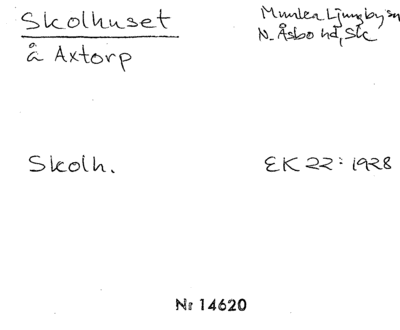 Skolhuset
å Axtorp
Munka Ljungby sn
N. Åsbo hd, Sk
Skolh.
EK 22: 1928
Nr 14620